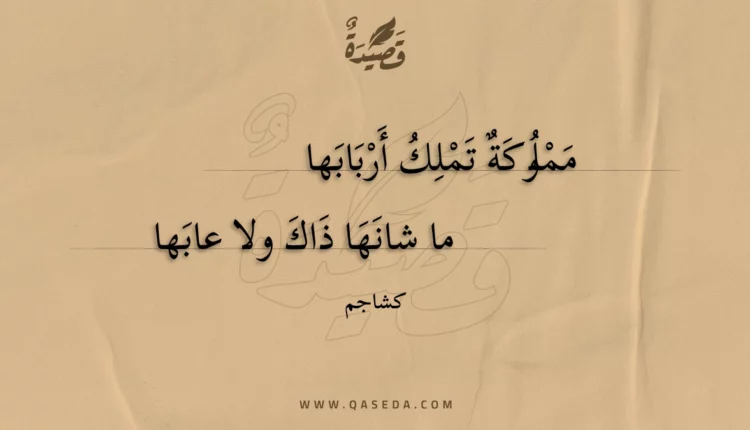 قَصِيدَةٌ
مَمْلُوكَةٌ تَمْلِكُ أَرْبَابَها
ما شانَهَا ذَاكَ ولا عابَها
كشاجم
WWW.QASEDA.COM